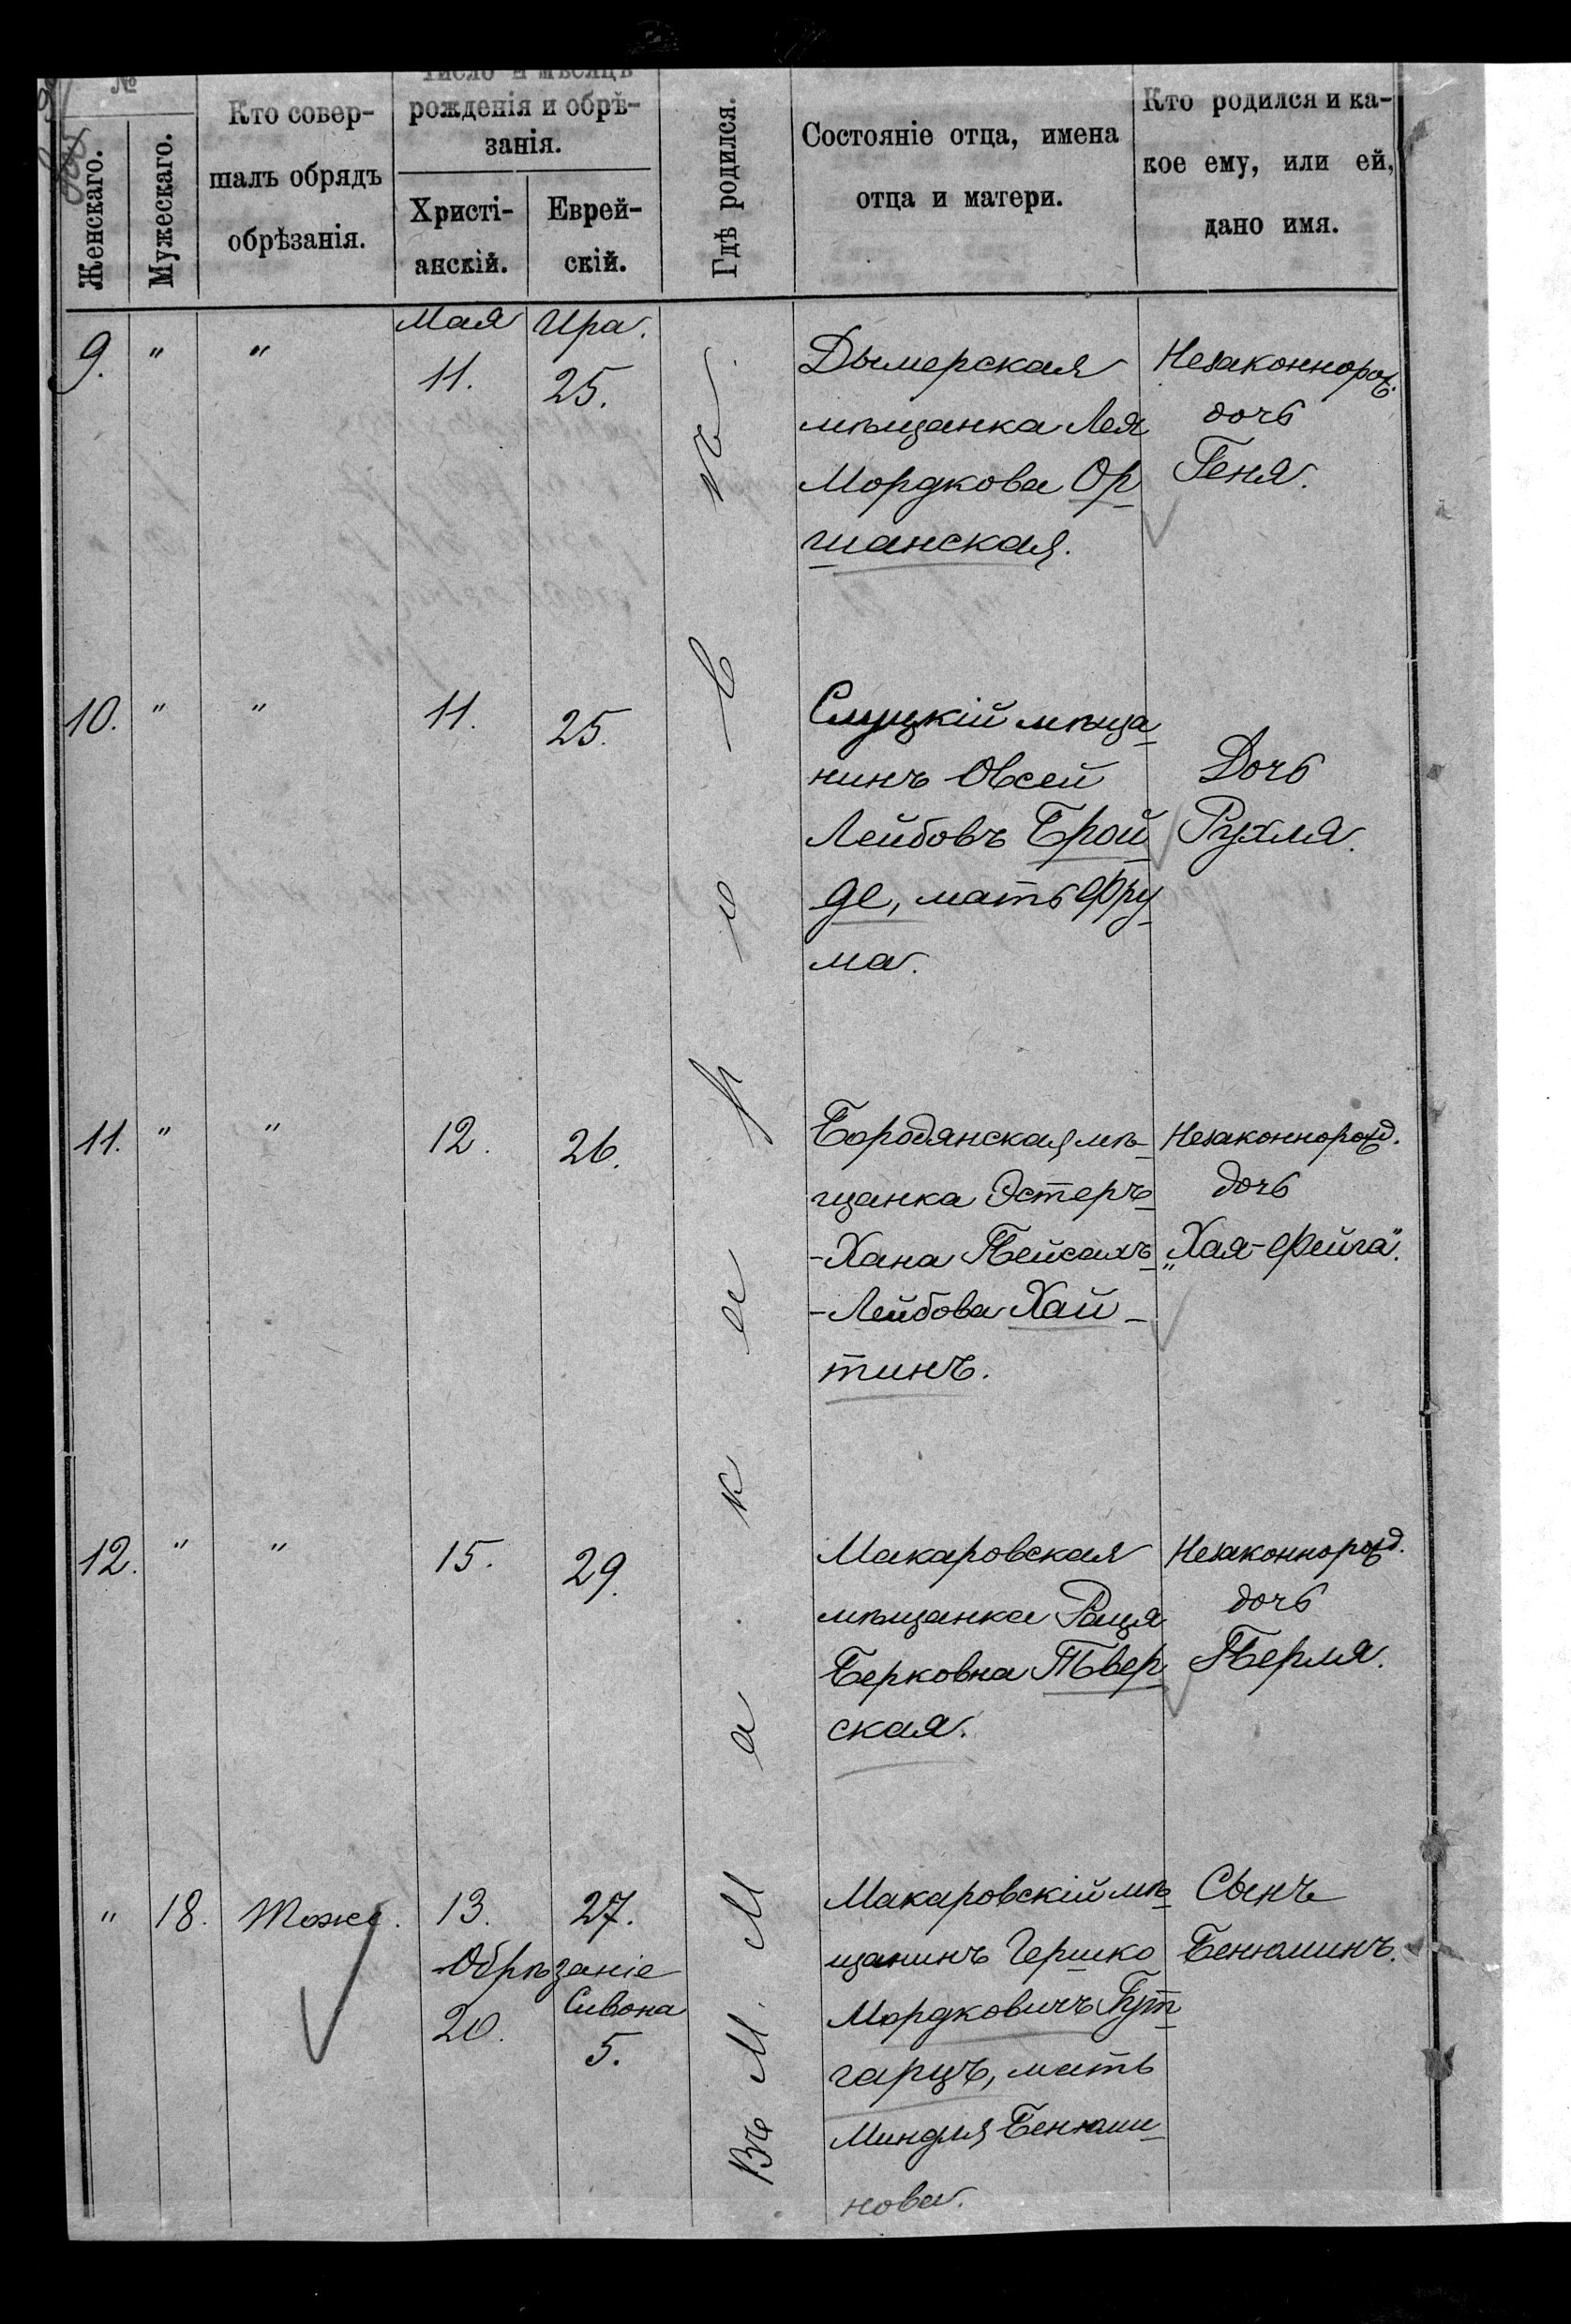 №
Женскаго.
Мужескаго.
Кто совер-
шалъ обрядъ
обрѣзанія.
Число и мѣсяцъ
рожденія и обрѣ-
занія.
Христі-
анскій.
Еврей-
скій.
Гдѣ родился.
Состояніе отца, имена
отца и матери.
Кто родился и ка-
кое ему, или ей,
дано имя.
Въ М. Макаровѣ.
9. " "
Мая
11.
Ира.
25.
Дымерская
мѣщанка Лея
Мордкова Ор
шанская.
Незаконнорож.
дочь
Геня.
10. " " 11. 25.
Слуцкій мѣща
нинъ Овсей
Лейбовъ Брой
де, мать Фру
ма.
Дочь
Рухля.
11. " " 12. 26.
Бородянская мѣ-
щанка Эстеръ
-Хана Пейсахъ
-Лейбова Хай-
тинъ.
Незаконнорожд.
дочь
„Хая-Фейга".
12. " " 15. 29.
Макаровская
мѣщанка Рация
Берковна Твер
ская.
Незаконнорожд.
дочь
Перля.
" 18. Тоже. 13. 27.
Обрѣзаніе
20.
Сивона
5.
Макаровскій мѣ
щанинъ Гершко
Мордковичъ Гут
гарцъ, мать
Миндля Бенюми
нова.
Сынъ
Бенюминъ.